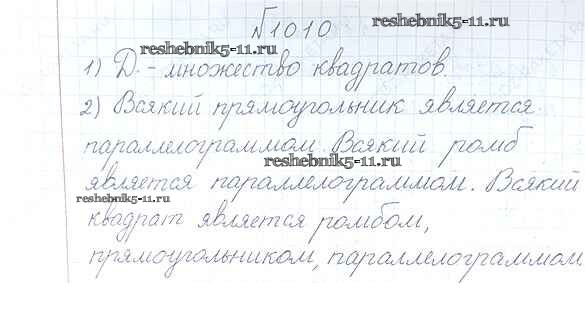 №1010
reshebnik5-11.ru
1) D - множество квадратов.
2) Всякий прямоугольник является
параллелограммом. Всякий ромб
reshebnik5-11.ru
является параллелограммом. Всякий
reshebnik5-11.ru
квадрат является ромбом,
прямоугольником, параллелограммом.